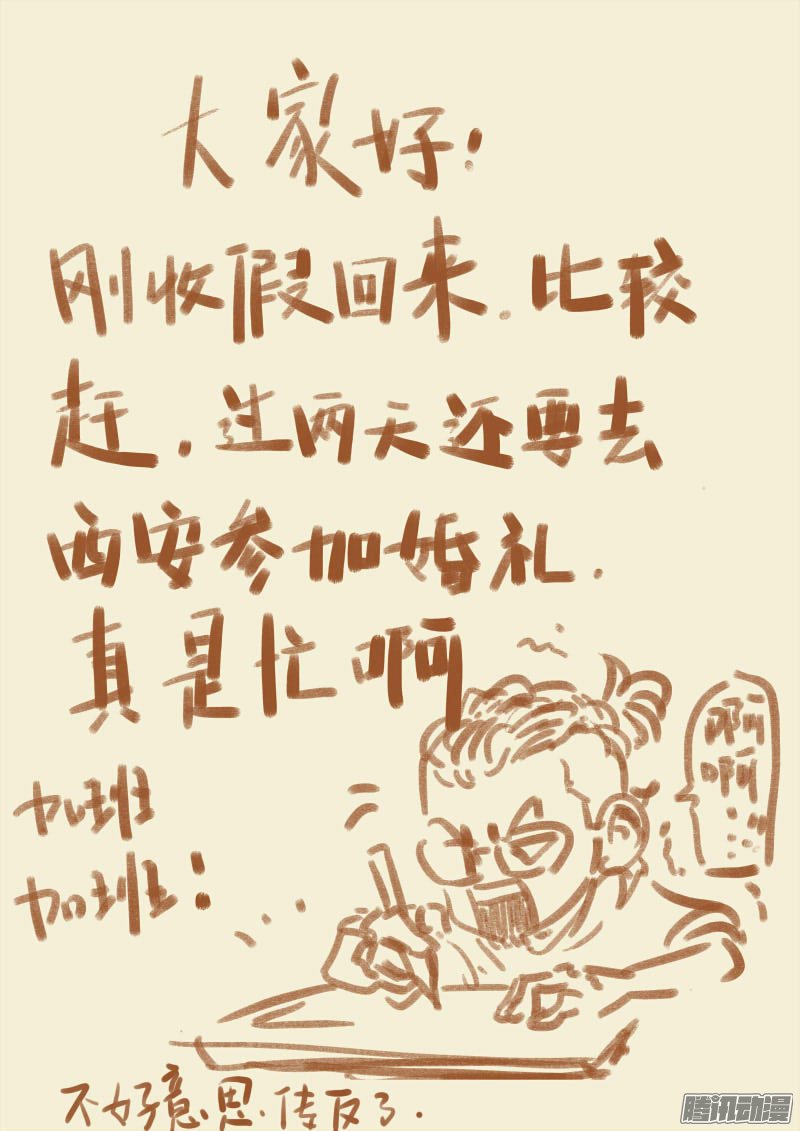 大家好！
刚收假回来.比较
赶.过两天还要去
西安参加婚礼.
真是忙啊
啊
啊
……
加班
加班！
不好意思.传反了.
腾讯动漫